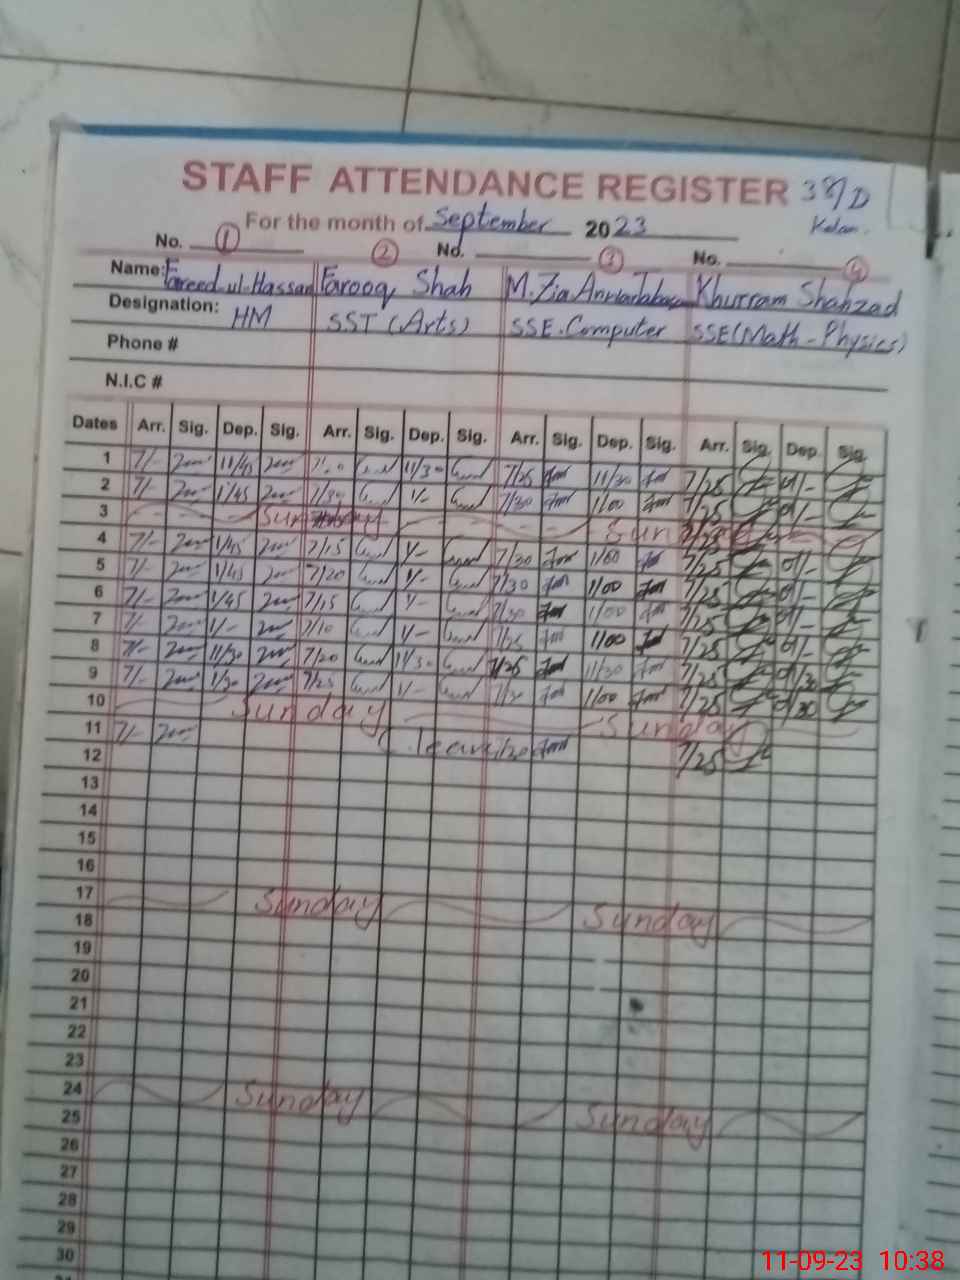 STAFF ATTENDANCE REGISTER 38/D
For the month of September 2023 Kalan.
No. 1 2 No. 3 No. 4
Name: Fareed-ul-Hassan Farooq Shah M. Zia Khurram Shahzad
Designation: HM SST (Arts) SSE.Computer SSE(Math-Physics)
Phone #
N.I.C #
Dates Arr. Sig. Dep. Sig. Arr. Sig. Dep. Sig. Arr. Sig. Dep. Sig. Arr. Sig. Dep. Sig.
1 7/- 11/45 11/30 7/25 11/30 7/25 01/-
2 7/- 1/45 7/30 1/- 7/30 1/00 7/25 01/-
3 Sunday Sunday
4 7/- 1/45 7/15 1/- 7/30 1/00 7/25 01/-
5 7/- 1/45 7/20 1/- 7/30 1/00 7/25 01/-
6 7/- 1/45 7/15 1/- 7/30 1/00 7/25 01/-
7 7/- 1/- 7/10 1/- 7/25 1/00 7/25 01/-
8 7/- 11/30 7/20 11/30 7/25 11/30 7/25
9 7/- 1/30 7/25 1/- 7/30 1/00 7/25
10 Sunday Sunday
11 7/- leave 7/20 7/25
12
13
14
15
16
17 Sunday
18 Sunday
19
20
21
22
23
24 Sunday
25 Sunday
26
27
28
29
30
11-09-23 10:38